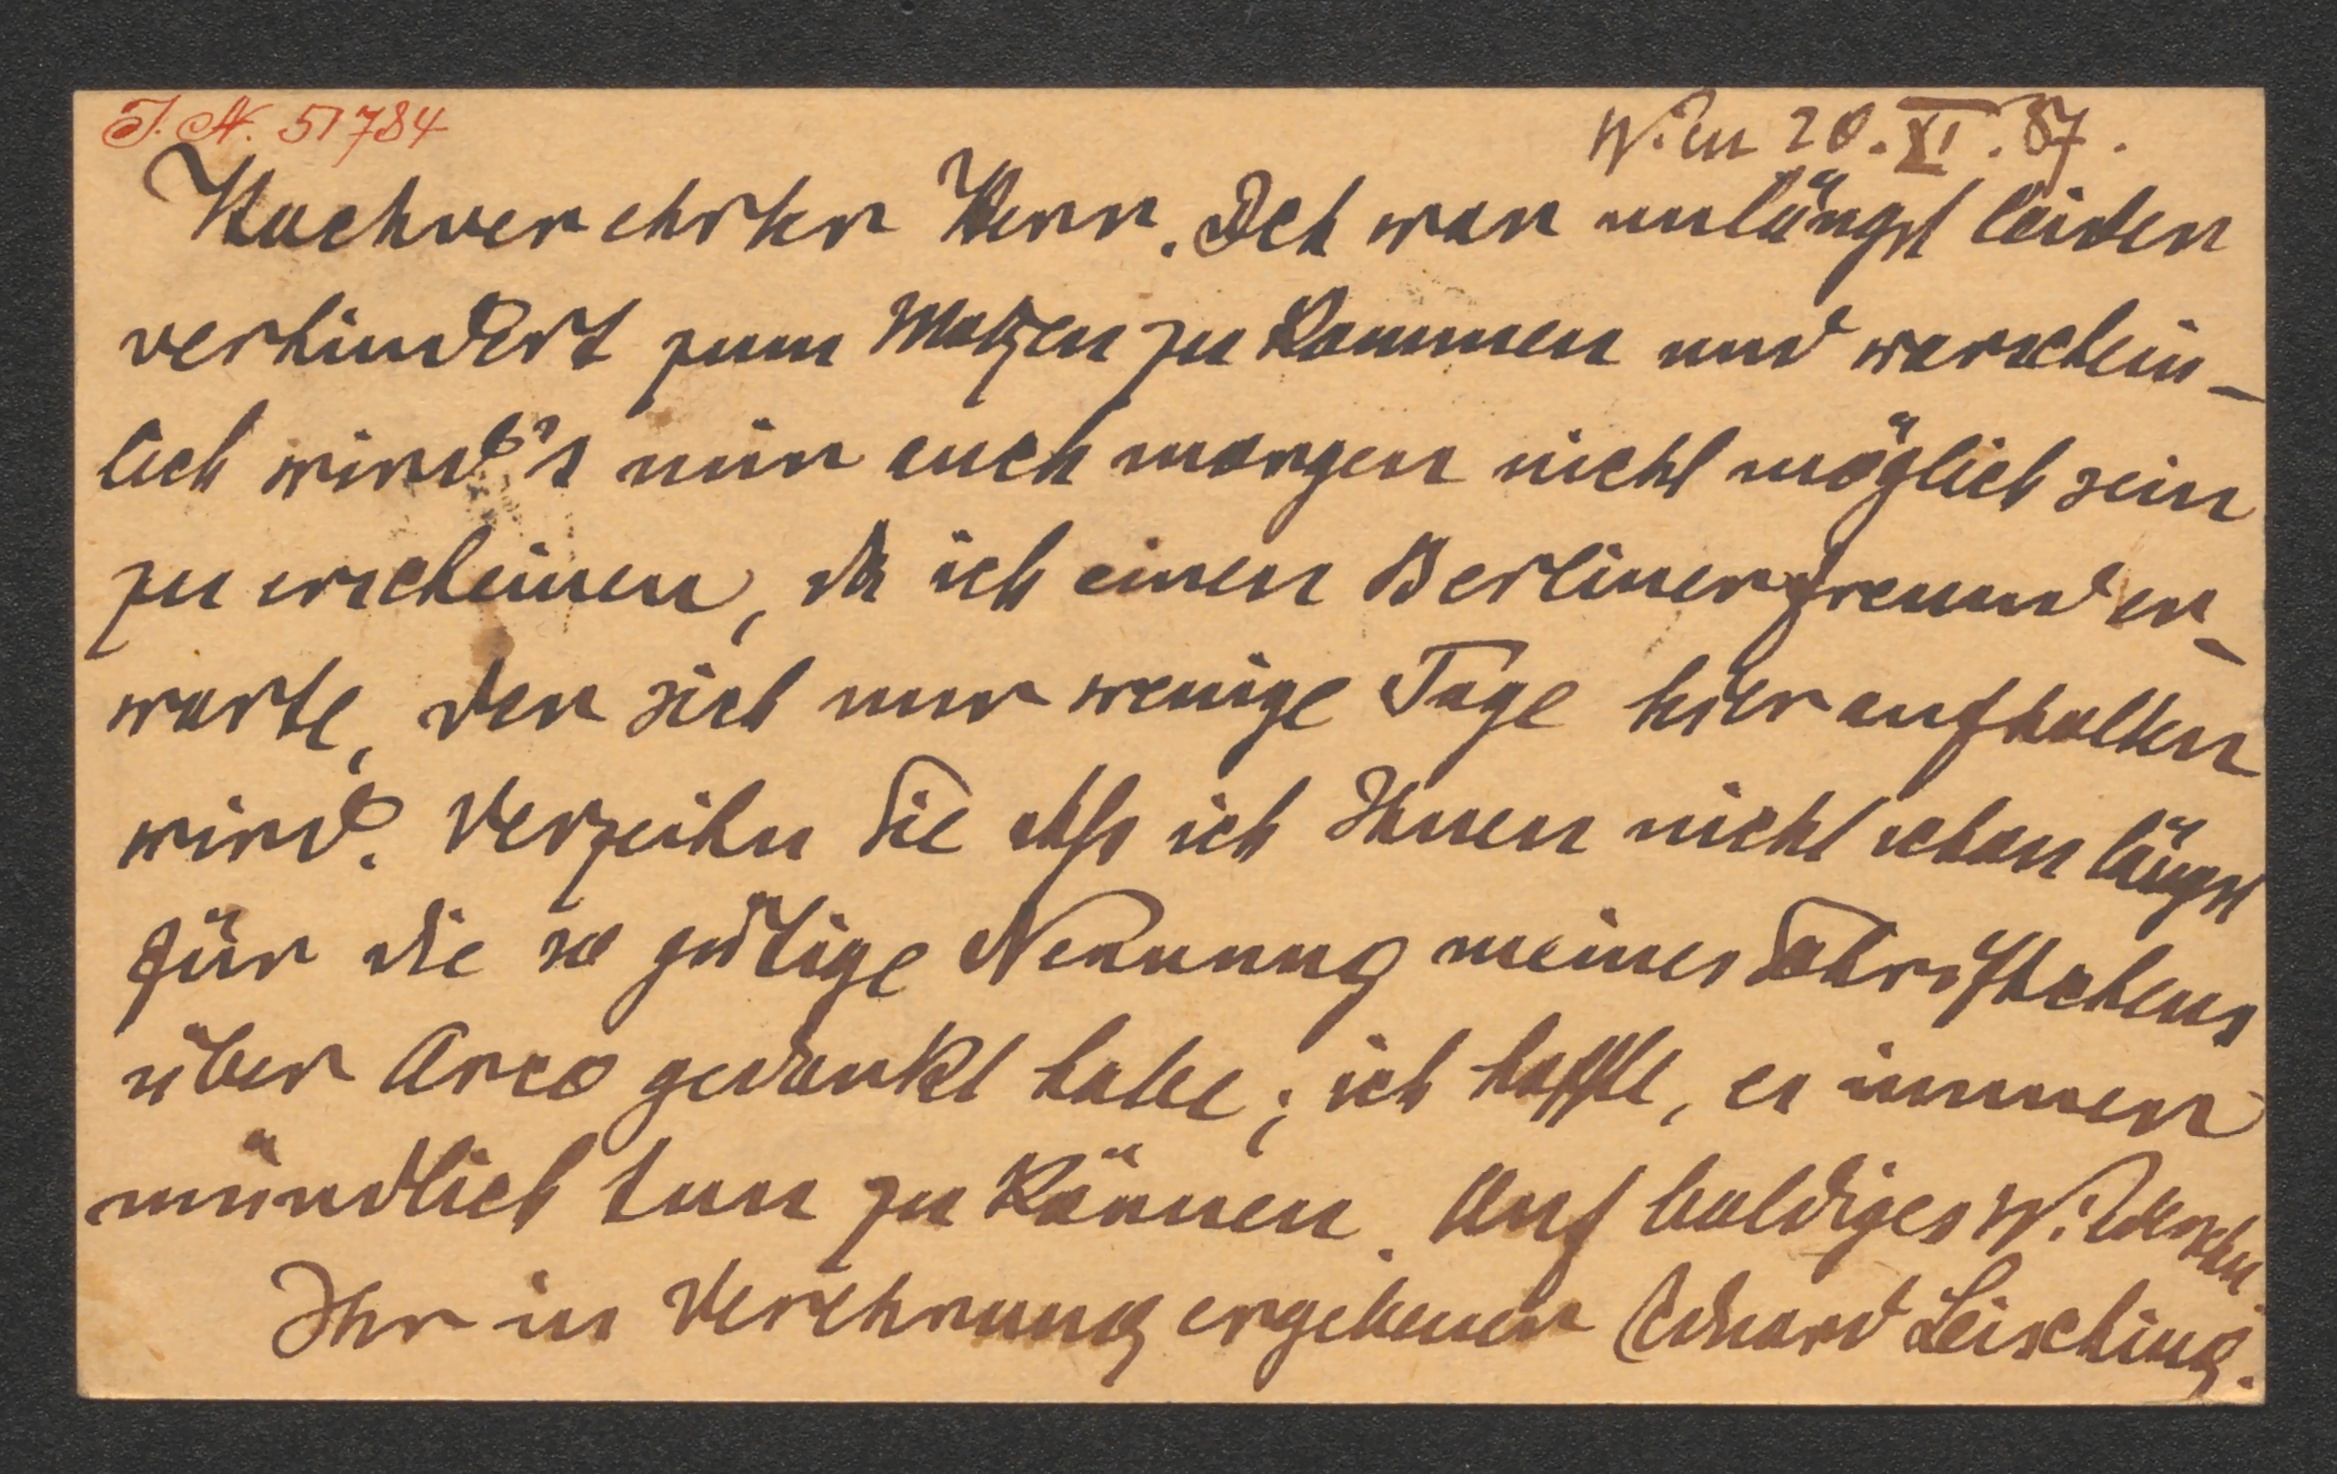 J. N. 51784
Wien 20. XI. 87.
Hochverehrter Herr. Ich war unlängst leider
verhindert zum Matzen zu kommen und warschein-
lich wird's mir auch morgen nicht möglich sein
zu erscheinen, da ich einen Berliner freund er-
warte, der sich nur wenige Tage hier aufhalten
wird. Verzeihn Sie daß ich Ihnen nicht schon längst
für die so gütige Nennung meines Schriftchens
über Arco gedankt habe; ich hoffte, es immer
mündlich tun zu können. Auf baldiges Widersehn
Ihr in Verehrung ergebener Eduard Leisching.